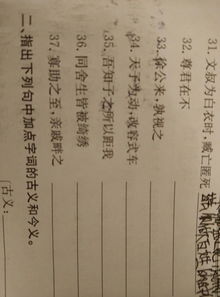 31. 文叔为白衣时,臧亡匿死
32. 尊君在不
33. 徐公来,孰视之
34. 天子为动,改容式车
35. 吾知子之所以距我
36. 同舍生皆被绮绣
37. 寡助之至,亲戚畔之
二、指出下列句中加点字词的古义和今义。
古义: